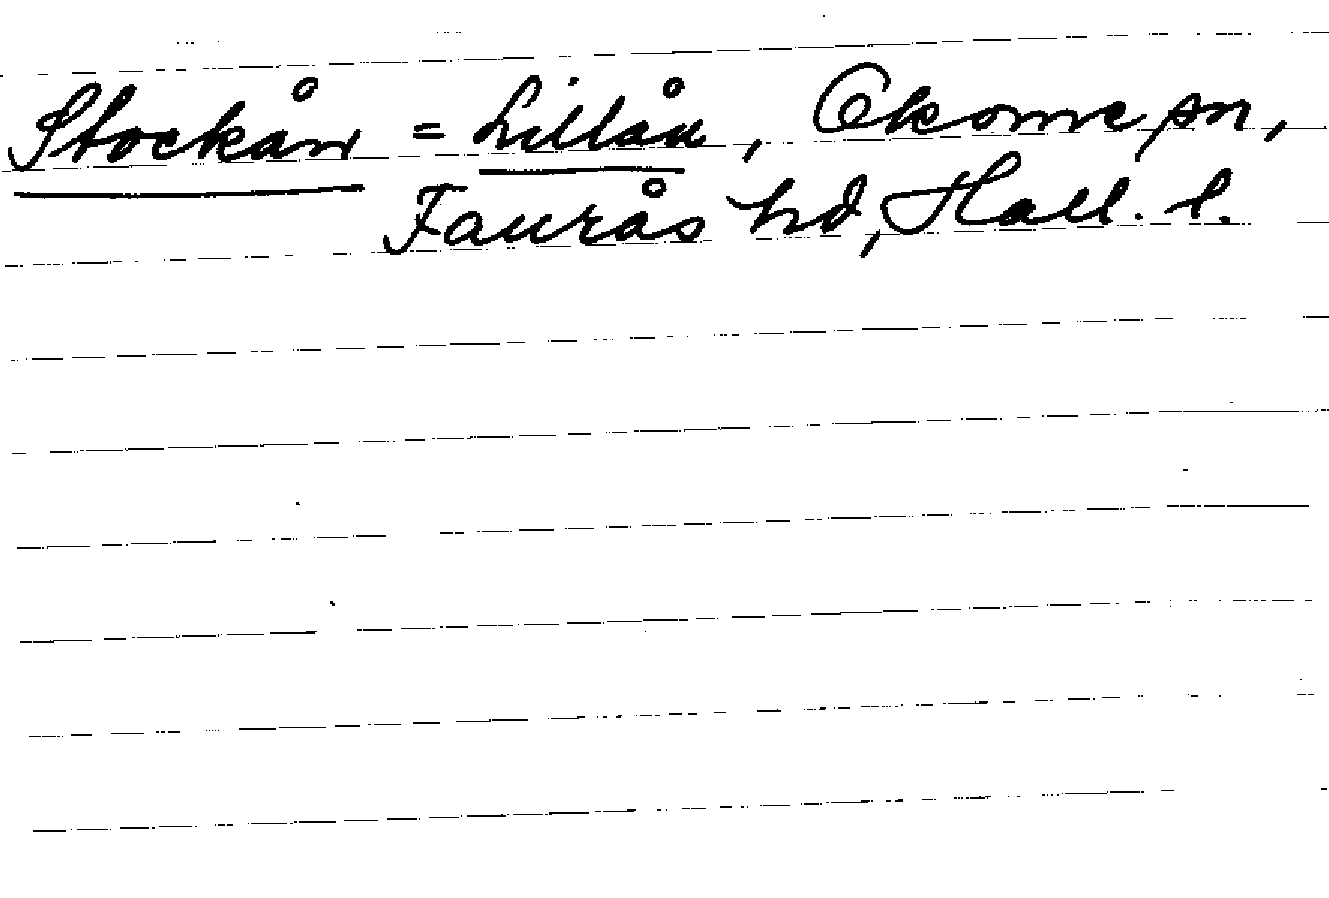 Stockån = Lillån, Okome sn,
Faurås hd, Hall. l.